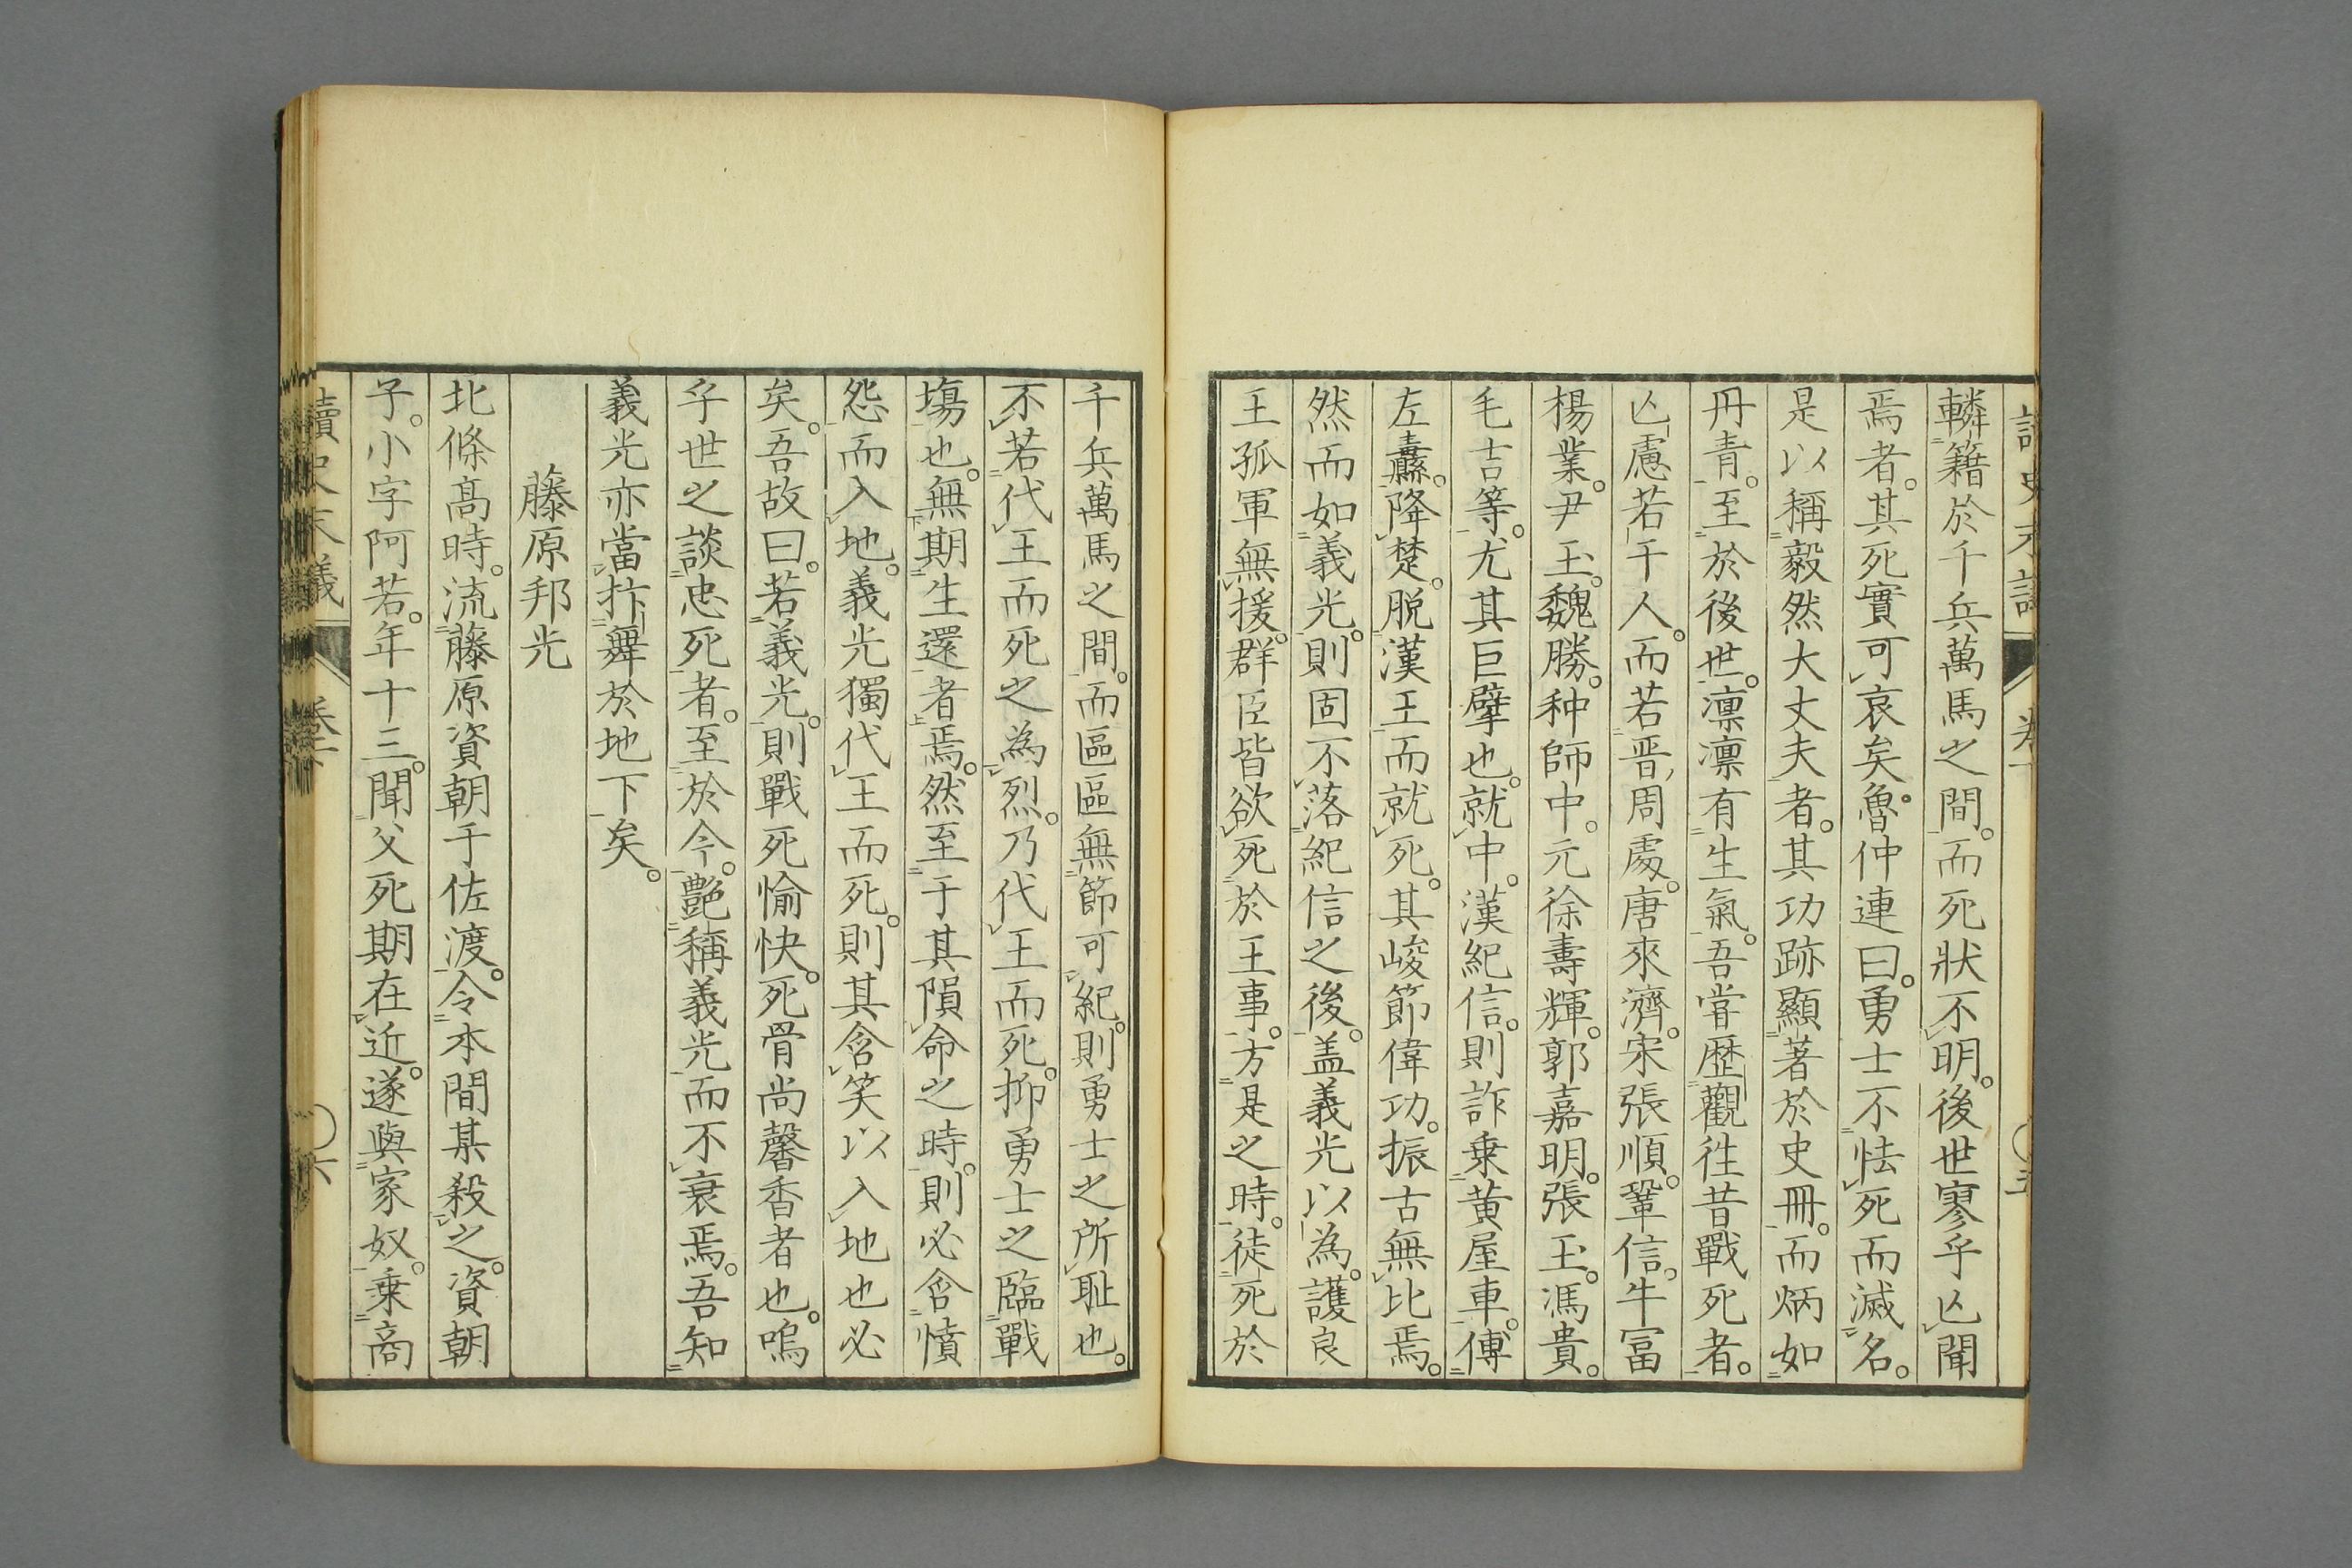 轔籍於千兵萬馬之間。而死狀不明。後世寥乎亾聞
焉者。其死實可哀矣。魯仲連曰。勇士不怯死而滅名。
是以稱毅然大丈夫者。其功跡顯著於史冊。而炳如
丹青。至於後世。凛凛有生氣。吾嘗歷觀徃昔戰死者。
亾慮若干人。而若晋周處。唐來濟。宋張順。鞏信。牛富
楊業。尹玉。魏勝。种師中。元徐壽輝。郭嘉明。張玉。馮貴。
毛吉等。尤其巨擘也。就中。漢紀信。則詐乗黃屋車。傅
左纛。降楚。脱漢王而就死。其峻節偉功。振古無比焉。
然而如義光。則固不落紀信之後。盖義光以為。護良
王孤軍無援。群臣皆欲死於王事。方是之時。徒死於
千兵萬馬之間。而區區無節可紀。則勇士之所耻也。
不若代王而死之為烈。乃代王而死。抑勇士之臨戰
塲也。無期生還者焉。然至于其隕命之時。則必含憤
怨而入地。義光獨代王而死。則其含笑以入地也必
矣。吾故曰。若義光。則戰死愉快。死骨尚馨香者也。嗚
乎世之談忠死者。至於今。艷稱義光而不衰焉。吾知
義光亦當抃舞於地下矣。
藤原邦光
北條髙時。流藤原資朝于佐渡。令本間某殺之。資朝
子。小字阿若。年十三。聞父死期在近。遂與家奴。乗商
讀史末議
卷一
六